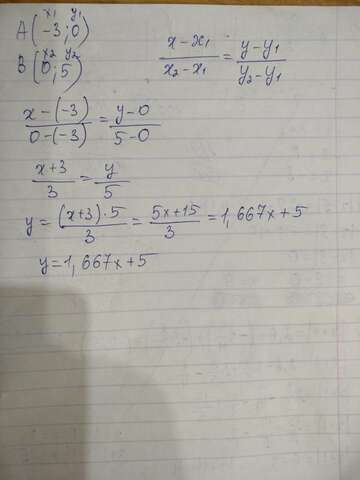 x₁ y₁
A(-3;0)
x₂ y₂
B(0;5)
(x-x₁)/(x₂-x₁)=(y-y₁)/(y₂-y₁)
(x-(-3))/(0-(-3))=(y-0)/(5-0)
(x+3)/3=y/5
y=((x+3)·5)/3=(5x+15)/3=1,667x+5
y=1,667x+5